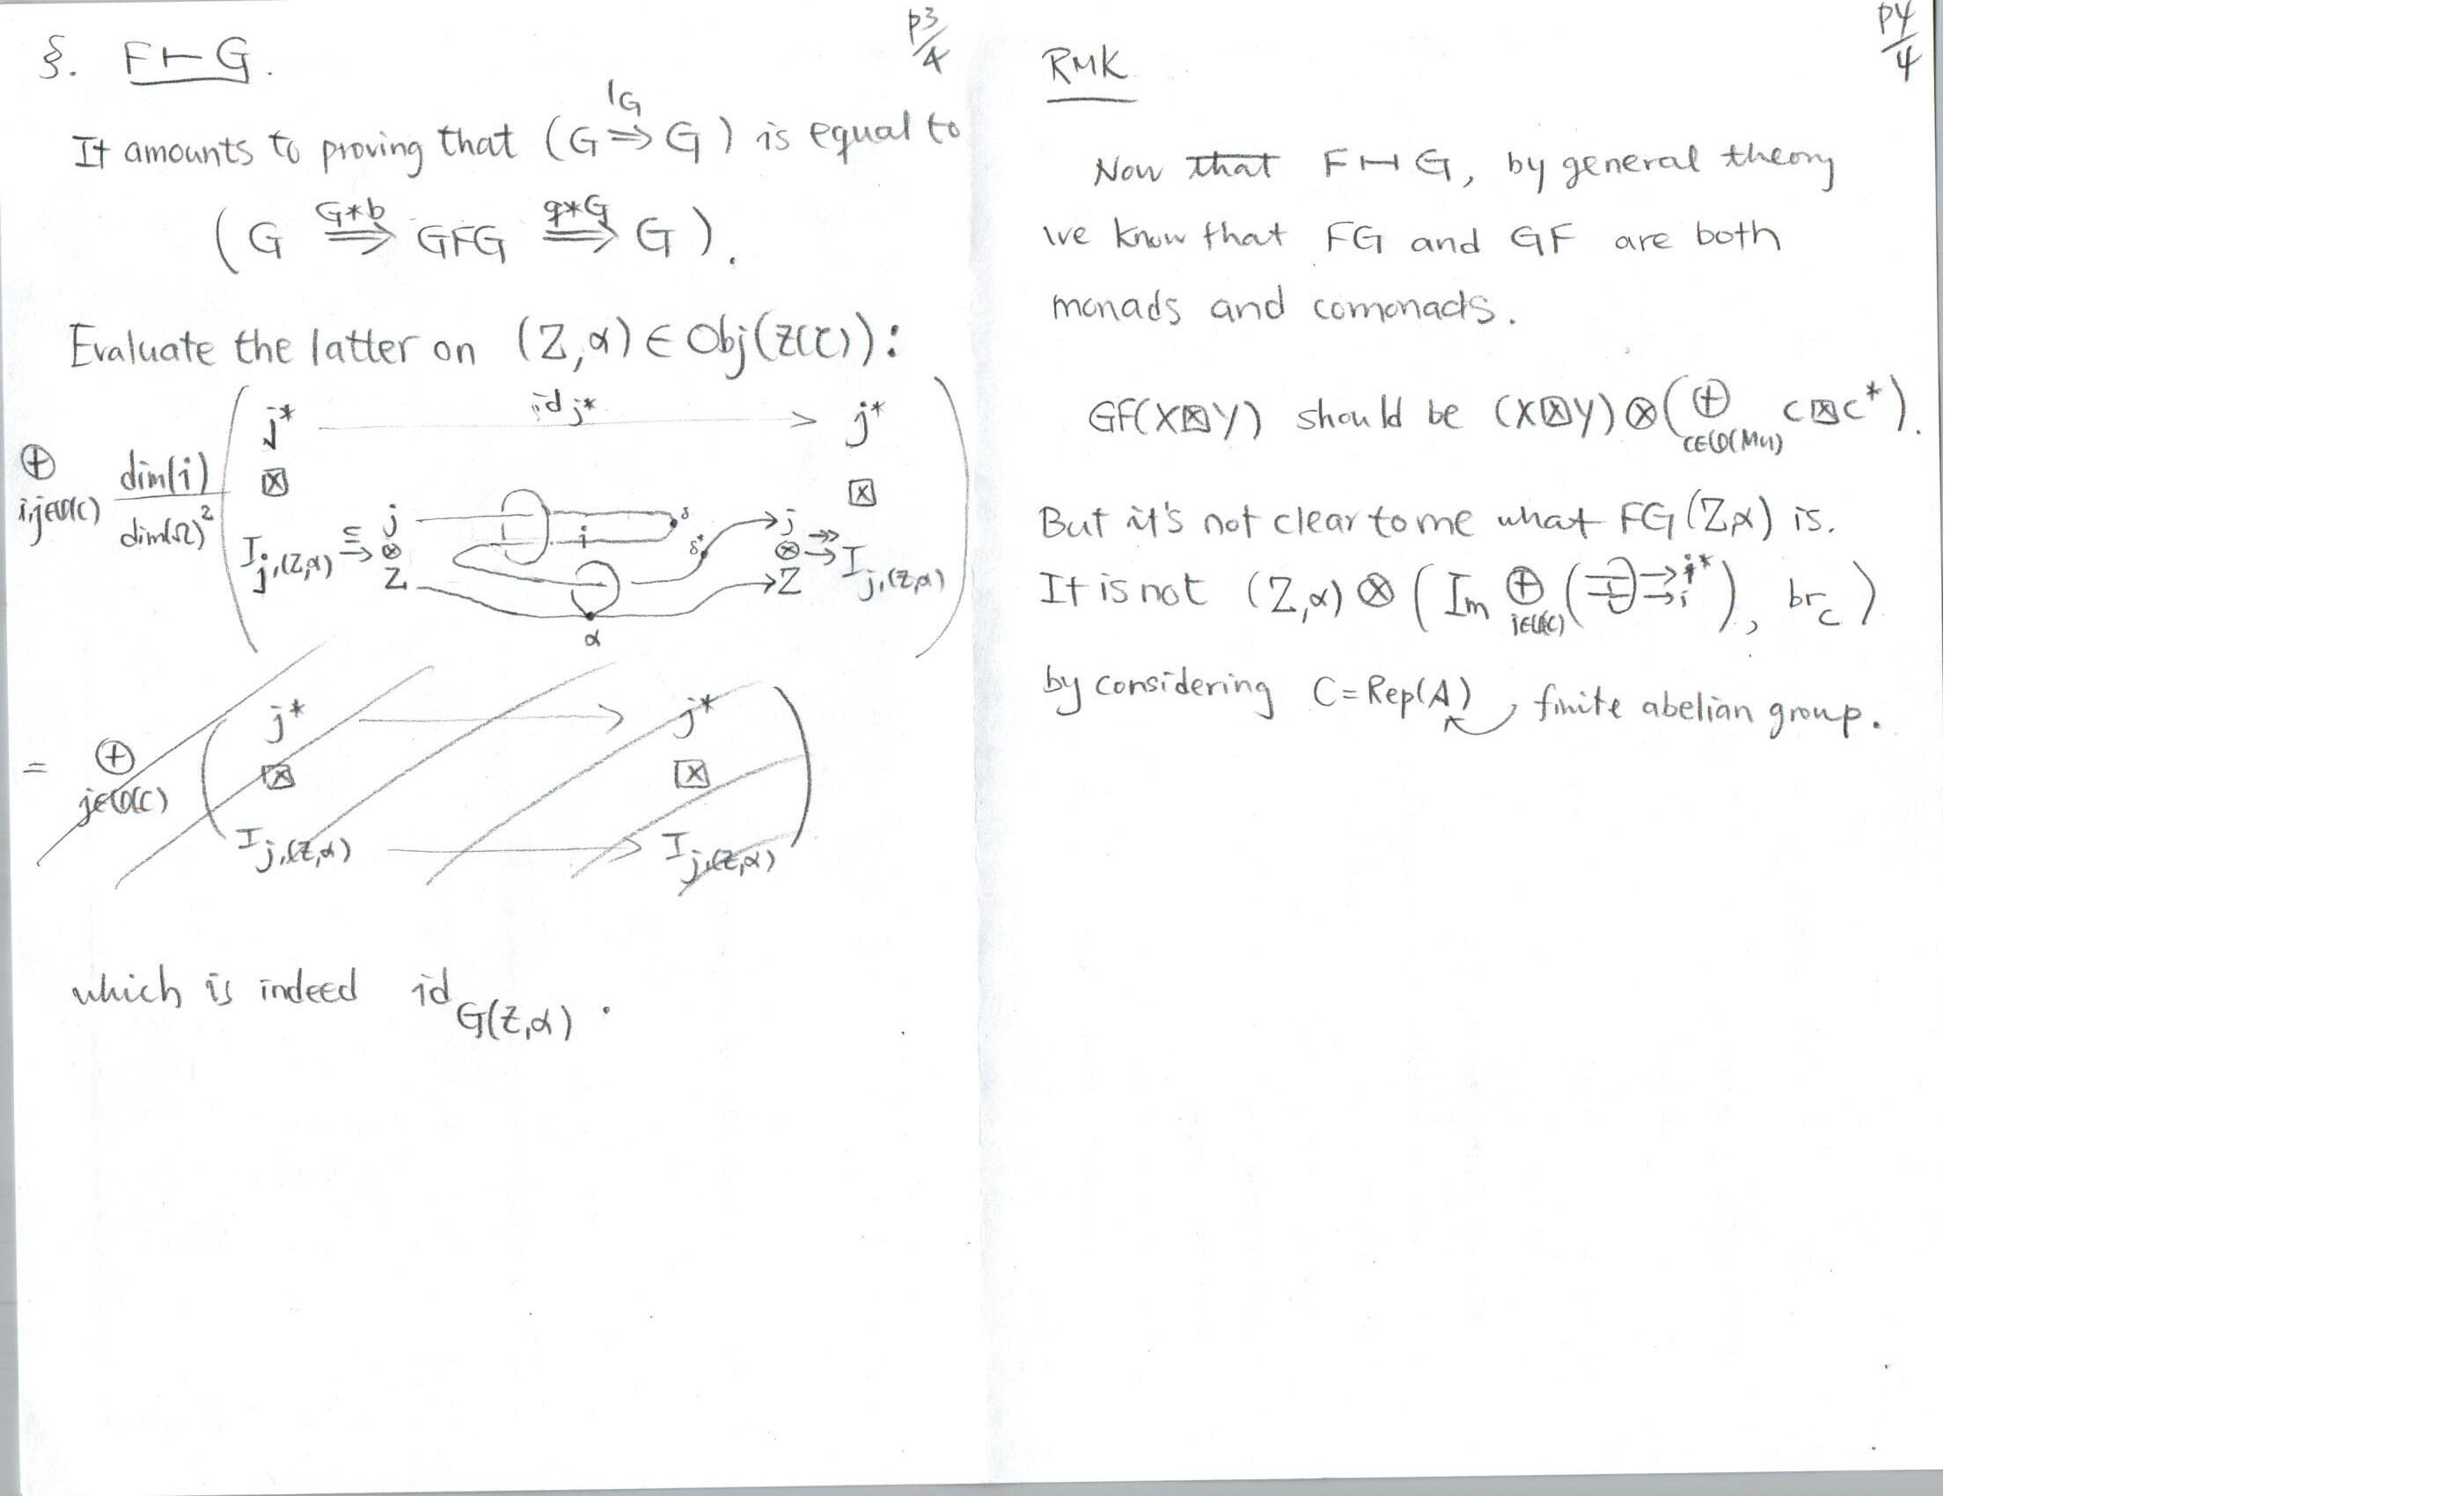 §. F ⊢ G.
p3/4
It amounts to proving that (G ⇒ G) is equal to
1G
(G ⇒ GFG ⇒ G).
G*b q*G
Evaluate the latter on (Z,α) ∈ Obj(Z(C)):
j* id j* j*
⊕ i,j∈O(C) dim(i)/dim(Ω)² ⊠ ⊠
I j,(Z,α) ⊆ j ⊗ Z i δ δ* j ⊗ Z I j,(Z,α)
α
j* j*
= ⊕ j∈O(C) ⊠ ⊠
I j,(Z,α) I j,(Z,α)
which is indeed id G(Z,α).
p4/4
RMK
Now that F ⊢⊣ G, by general theory
we know that FG and GF are both
monads and comonads.
GF(X⊠Y) should be (X⊠Y)⊗(⊕ c⊠c*).
But it's not clear to me what FG(Z,α) is.
It is not (Z,α) ⊗ (Im ⊕ i∈O(C) ( i* i ), br C)
by considering C=Rep(A), finite abelian group.